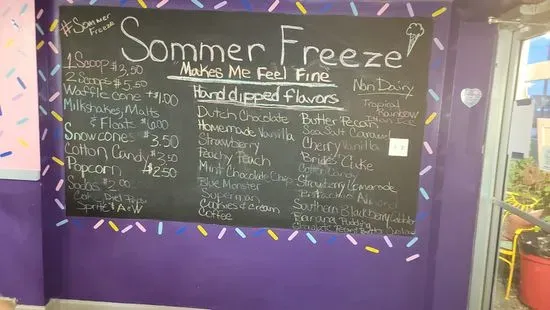 #Sommer
Freeze
Sommer Freeze
Makes Me Feel Fine
Hand dipped flavors
1 Scoop $4.50
2 Scoops $5.50
Waffle cone +$1.00
Milkshakes, Malts
& Floats
Snow cones $3.50
Cotton Candy $3.50
Popcorn $2.50
Sodas $2.00
Coke Diet Pepsi
Sprite A&W
Dutch Chocolate
Homemade Vanilla
Strawberry
Peachy Peach
Mint Chocolate Chip
Blue Monster
Superman
Cookies & Cream
Coffee
Butter Pecan
Sea Salt Caramel
Cherry Vanilla
Brides Cake
Cotton Candy
Strawberry Lemonade
Pistachio Almond
Southern Blackberry Cobbler
Banana Pudding
Chocolate Peanut Butter
Non Dairy
Tropical
Rainbow
Italian Ice